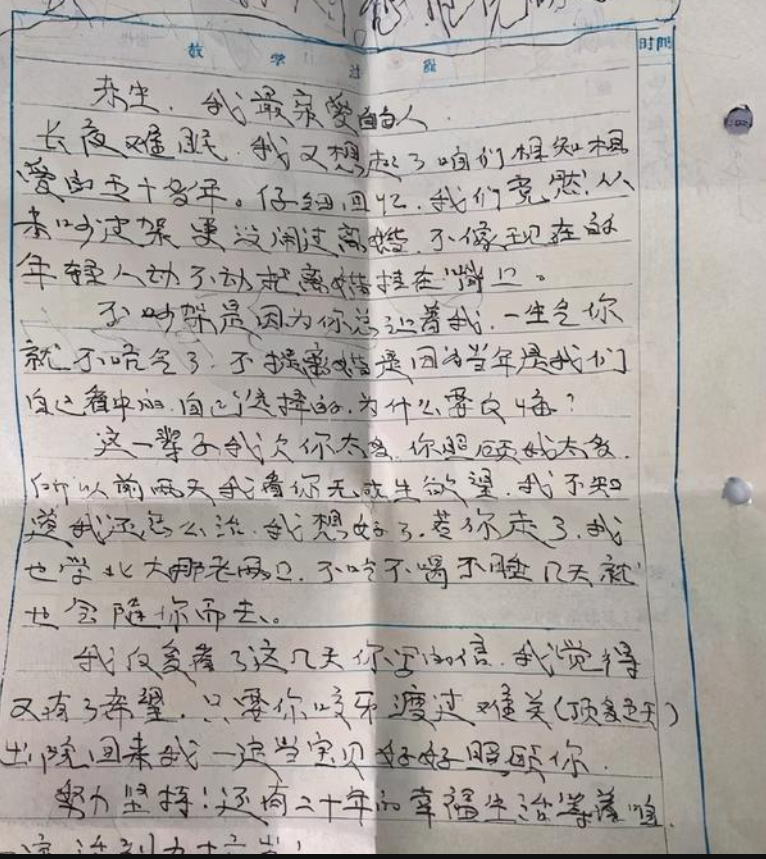 教 学 过 程
时间
未生,我最亲爱的人.
长夜难眠.我又想起了咱们相知相
爱的五十多年。仔细回忆.我们竟然从
未吵过架更没闹过离婚.不像现在的
年轻人动不动把离婚挂在嘴上。
不吵架是因为你总迎着我.一生气你
就不吭气了.不提离婚是因为当年是我们
自己看中的.自己选择的.为什么要反悔?
这一辈子我欠你太多.你照顾我太多.
所以前两天我看你无求生欲望.我不知
道我还怎么活.我想好了.若你走了.我
也学北大那老两口.不吃不喝不睡几天就
也会随你而去。
我反复看了这几天你写的信.我觉得
又有了希望.只要你咬牙渡过难关(顶多 天)
出院回来我一定当宝贝好好照顾你.
努力坚持!还有二十年的幸福生活等着咱.